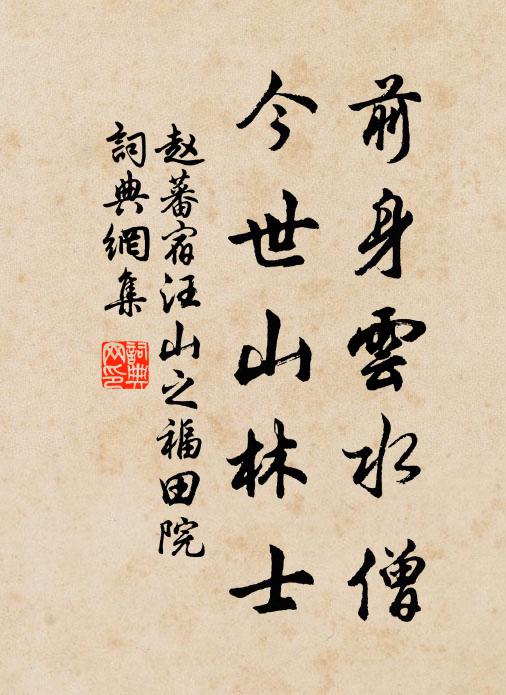 前身雲水僧
今世山林士
赵蕃宿汪山之福田院
詞典網集
詞典网印